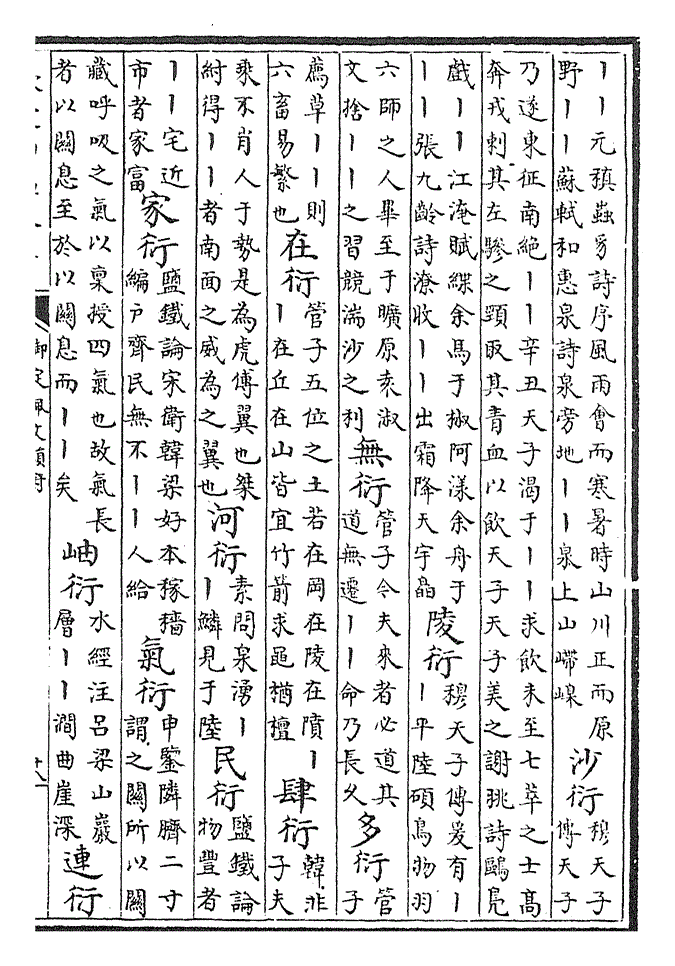 丨丨元稹蟲豸詩序風雨會而寒暑時山川正而原
野丨丨蘇軾和惠泉詩泉旁地丨丨泉上山㠔嵲
沙衍
穆天子
傳天子
乃遂東征南絕丨丨辛丑天子渴于丨丨求飲未至七萃之士高
奔戎刺其左驂之頸取其青血以飲天子天子美之謝朓詩鷗鳧
戲丨丨江淹賦緤余馬于椒阿漾余舟于
丨丨張九齡詩潦收丨丨出霜降天宇晶
陵衍
穆天子傳爰有丨
丨平陸碩鳥物羽
六師之人畢至于曠原袁淑
文捨丨丨之習競湍沙之利
無衍
管子令夫來者必道其
道無遷丨丨命乃長久
多衍
管
子
薦草丨丨則
六畜易繁也
在衍
管子五位之土若在岡在陵在隫丨
丨在丘在山皆宜竹箭求黽楢檀
肆衍
韓非
子夫
乘不肖人于勢是為虎傅翼也桀
紂得丨丨者南面之威為之翼也
河衍
素問泉湧丨
丨鱗見于陸
民衍
鹽鐵論
物豐者
丨丨宅近
市者家富
家衍
鹽鐵論宋衛韓梁好本稼穡
編戶齊民無不丨丨人給
氣衍
申鑒隣臍二寸
謂之關所以關
藏呼吸之氣以稟授四氣也故氣長
者以關息至於以關息而丨丨矣
岫衍
水經注呂梁山巖
層丨丨澗曲崖深
連衍
御定佩文韻府